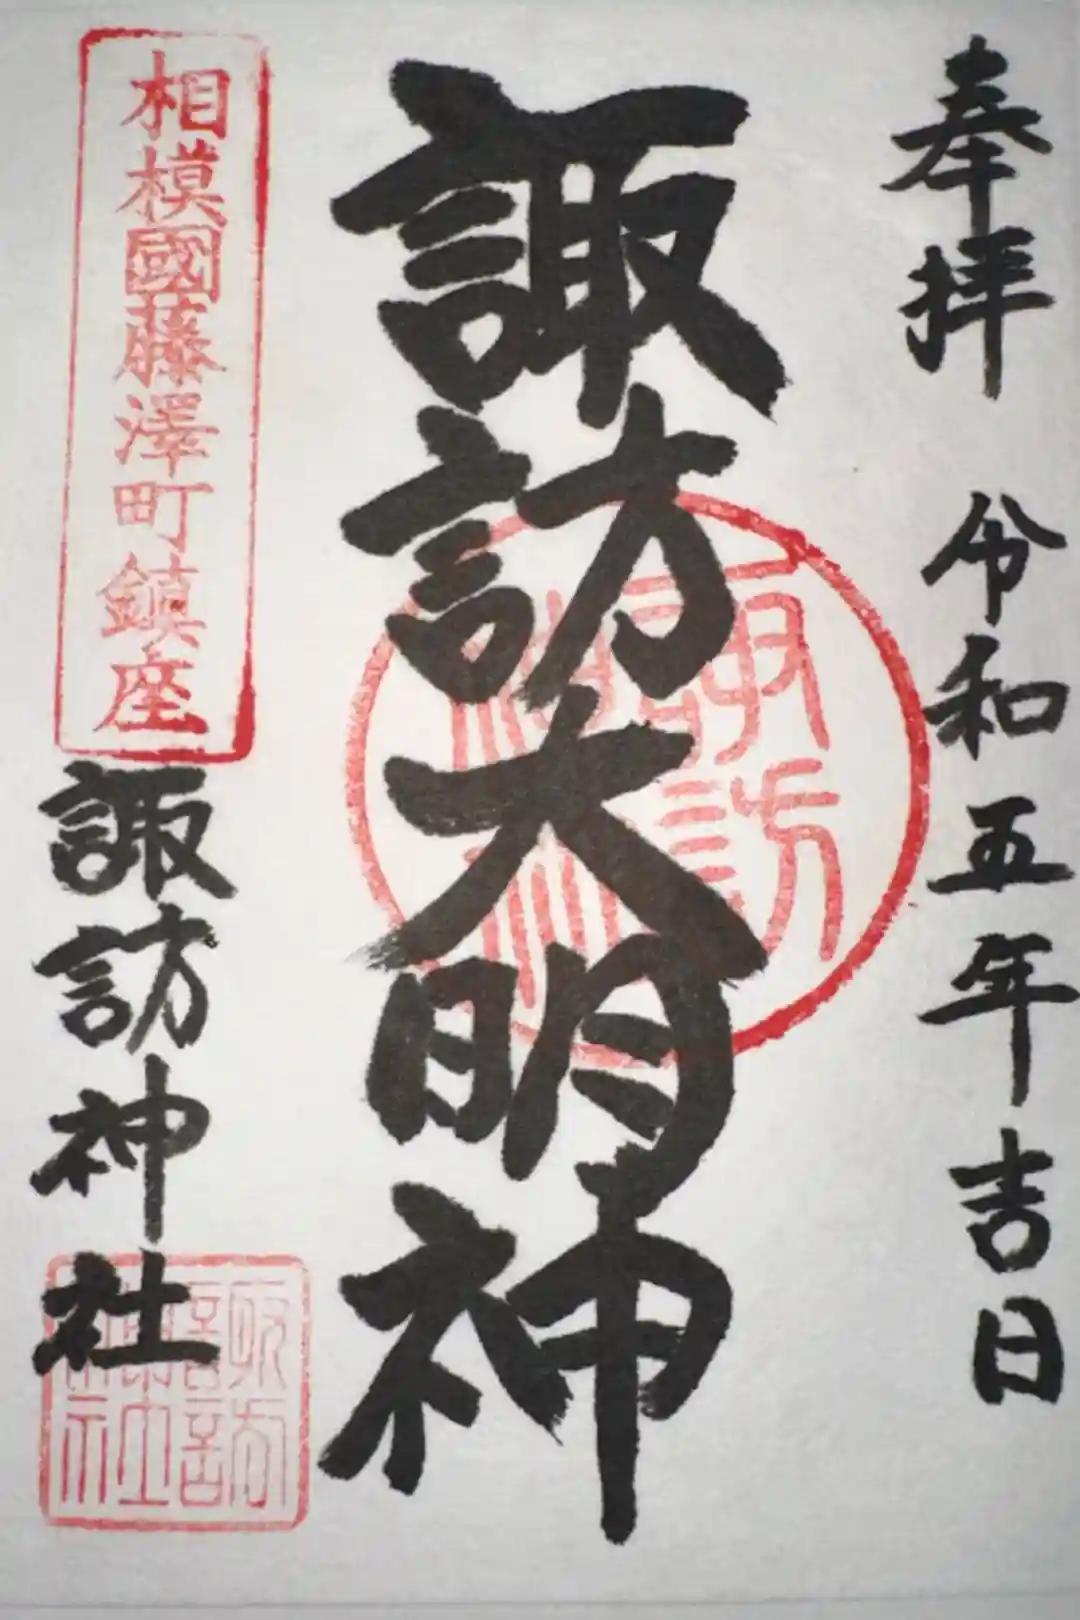 奉拝 令和五年吉日
諏訪大明神
諏訪
相模國藤澤町鎮座
諏訪神社
諏訪
神社